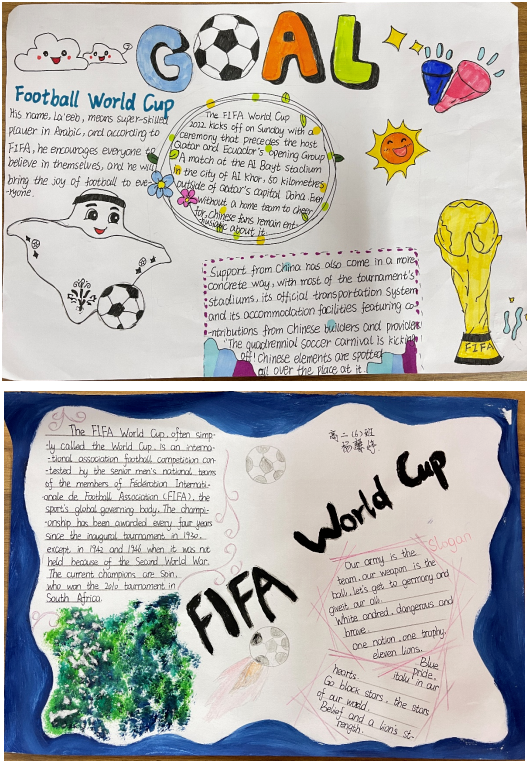 GOAL
Football World Cup
His name, La'eeb, means super-skilled
player in Arabic, and according to
FIFA, he encourages everyone to
believe in themselves, and he will
bring the joy of football to eve-
-ryone.
The FIFA World Cup
2022 kicks off on Sunday with a
ceremony that precedes the host
Qatar and Ecuador's opening Group
A match at the Al Bayt Stadium
in the city of Al Khor, 50 kilometres
outside of Qatar's capital Doha Even
without a home team to cheer
for, Chinese fans remain ent-
husiastic about it.
Support from China has also come in a more
concrete way, with most of the tournament's
stadiums, its official transportation system
and its accommodation facilities featuring co-
ntributions from Chinese builders and providers
"The quadrennial soccer carnival is kicking
off! Chinese elements are spotted
all over the place at it
FIFA
The FIFA World Cup, often simp-
-ly called the World Cup, is an interna-
-tional association football competition con-
-tested by the senior men's national teams
of the members of Fédération Internati-
onale de Football Association (FIFA), the
sport's global governing body. The champi-
-onship has been awarded every four years
since the inaugural tournament in 1930,
except in 1942 and 1946 when it was not
held because of the Second World War.
The current champions are Spin,
who won the 2010 tournament in
South Africa.
高二(6)班
杨
World Cup
FIFA
Slogan
Our army is the
team, our weapon is the
ball, let's get to germany and
giveit our all.
White andred, dangerous and
brave.
one nation, one trophy,
eleven lions.
Blue
pride,
italu in our
hearts.
Go black stars, the stars
of our world.
Belief and a lion's st-
rength.